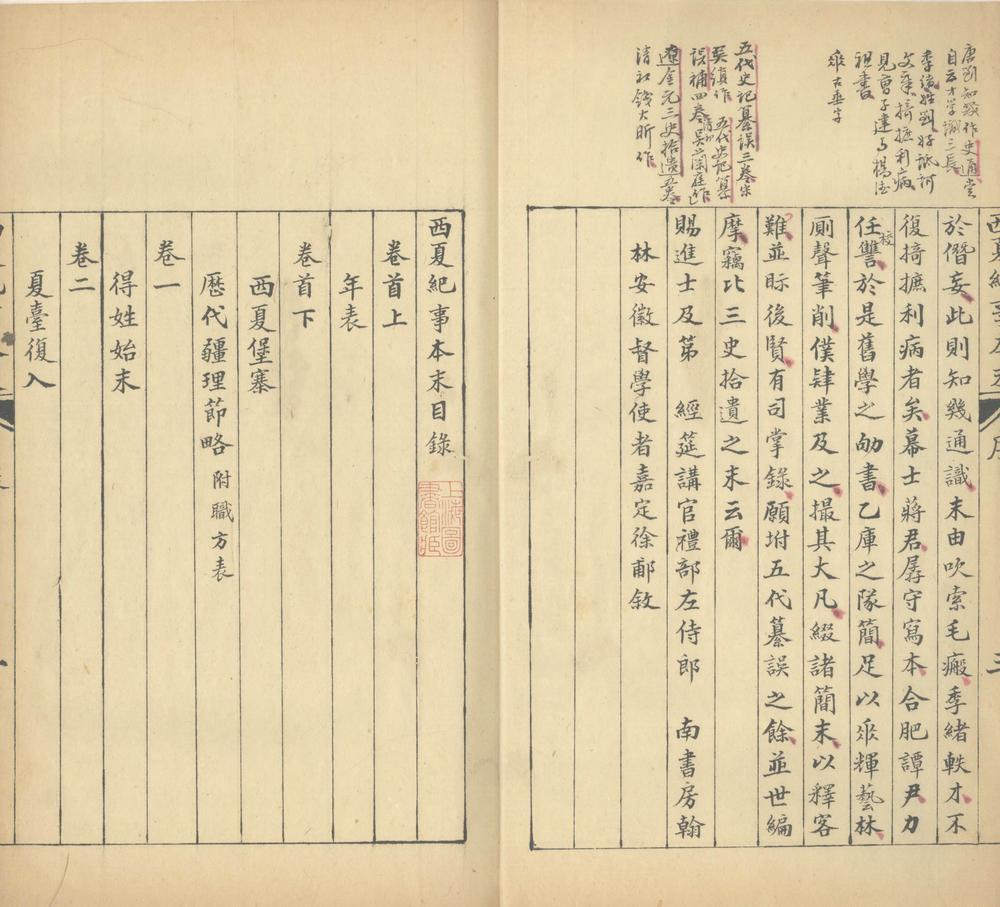 唐劉知幾作史通嘗
自云才學識三長
季緒姓劉好詆訶
文章掎摭利病
見曹子建与楊德
祖書
五代史記纂誤三卷宋
吳縝作 五代史記纂
誤補四卷清初吳蘭庭作
遼金元三史拾遺五卷
清初錢大昕作
於僭妄此則知幾通識末由吹索毛瘢季緒軼才不
復掎摭利病者矣幕士蔣君孱守寫本合肥譚尹力
任讐校於是舊學之劬書乙庫之隊簡足以氶輝藝林
廁聲筆削僕肄業及之撮其大凡綴諸簡末以釋客
難並眎後賢有司掌錄願坿五代纂誤之餘並世編
摩竊比三史拾遺之末云爾
賜進士及第 經筵講官禮部左侍郎 南書房翰
林安徽督學使者嘉定徐郙敘
西夏紀事本末目錄
卷首上
年表
卷首下
西夏堡寨
歷代疆理節略附職方表
卷一
得姓始末
卷二
夏臺復入
上海圖
書館藏